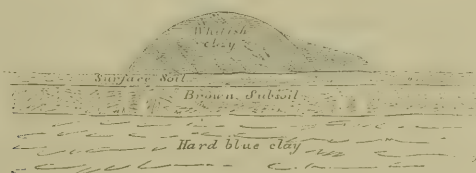 Whitish
clay
Surface Soil
Brown Subsoil
Hard blue clay